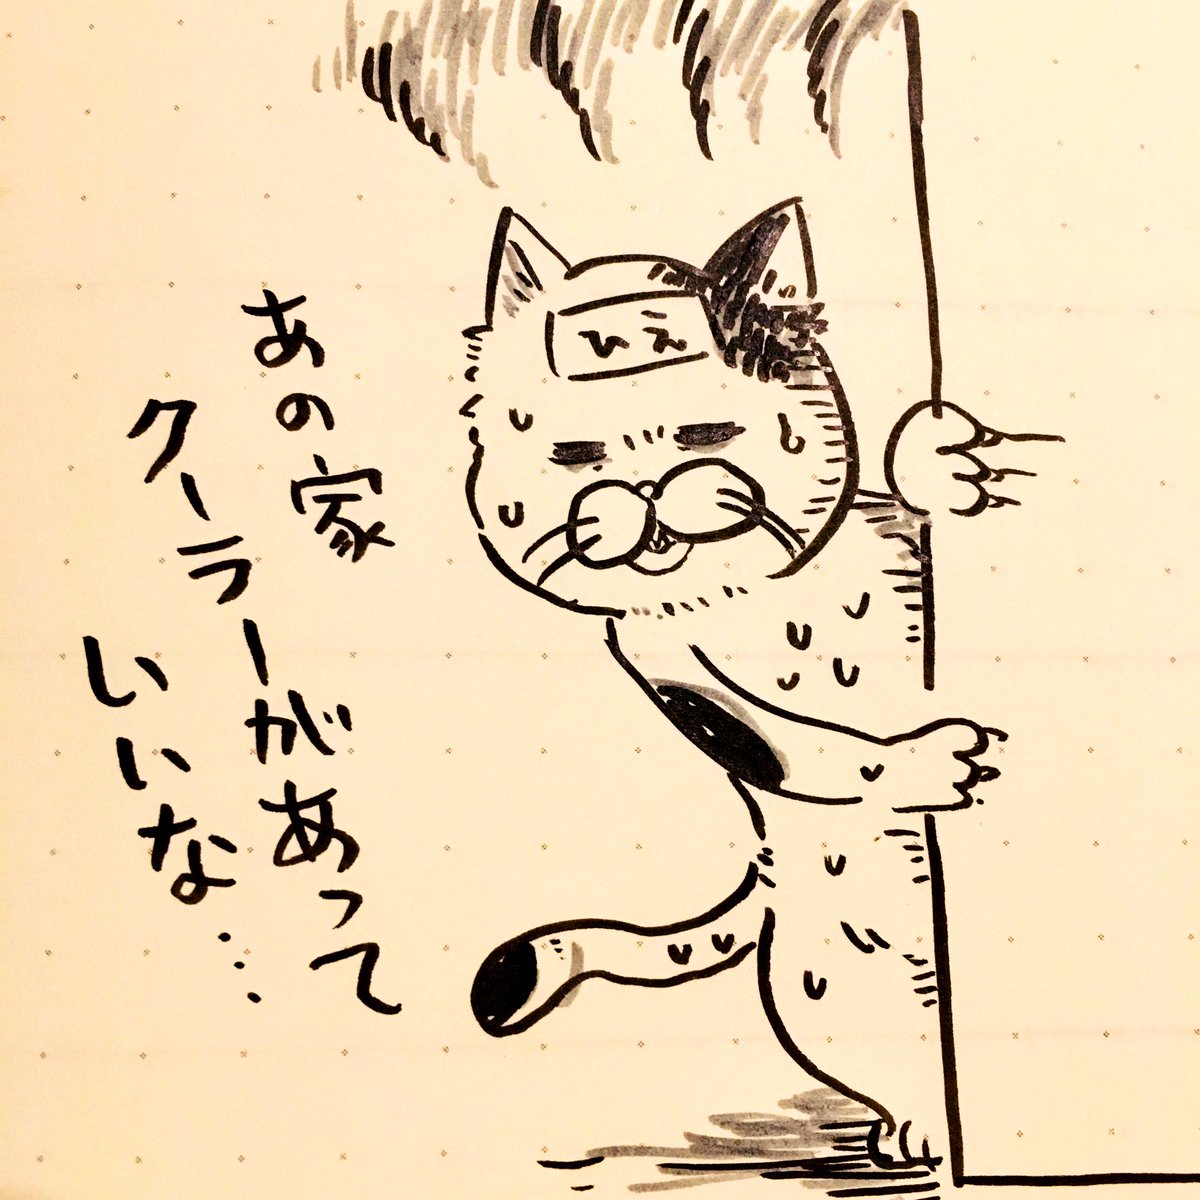 あの家
クーラーがあって
いいな…
ひえ